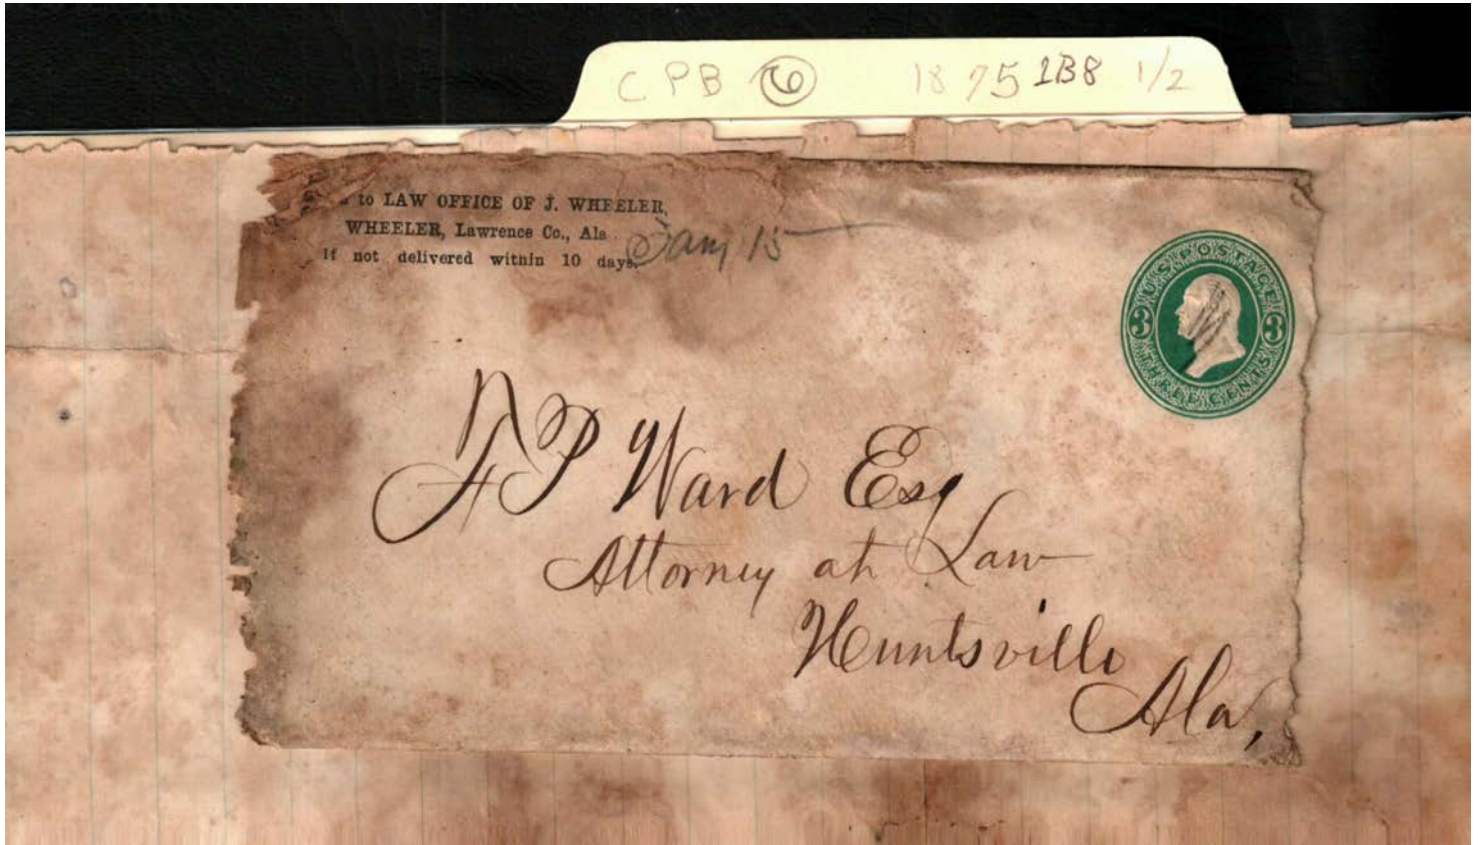 CPB 6 1875 1B8 1/2
to LAW OFFICE OF J. WHEELER,
WHEELER, Lawrence Co., Ala
If not delivered within 10 days.
Jany 15
U.S. POSTAGE
3 3
THREE CENTS
P Ward Esq
Attorney at Law
Huntsville
Ala,